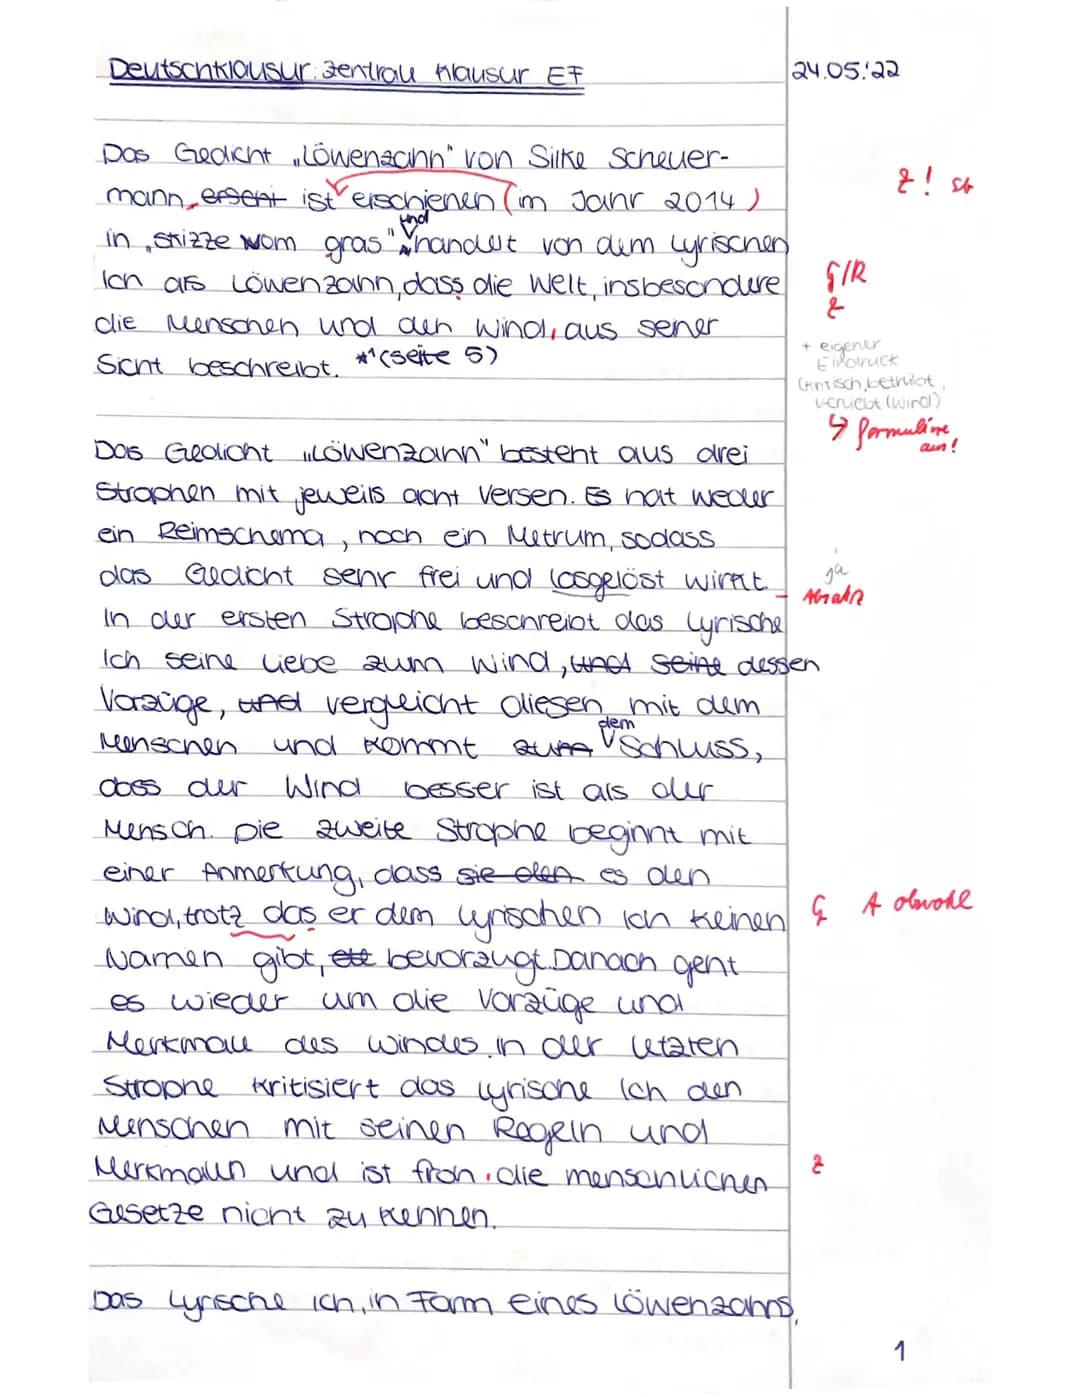 Deutschklausur: Zentrale Klausur EF
24.05.'22
Das Gedicht „Löwenzahn" von Silke Scheuer-
Z! Sb
mann, erseht ist erschienen (im Jahr 2014)
und
in „Skizze vom gras" handelt von dem Lyrischen
Ich als Löwenzahn, dass die Welt, insbesondere
G/R
Z
die Menschen und den Wind, aus seiner
Sicht beschreibt. *¹ (Seite 5)
+ eigener
Eindruck
(kritisch, betrübt,
verliebt (Wind)
↳ formuliere
aus!
Das Gedicht „Löwenzahn" besteht aus drei
Strophen mit jeweils acht Versen. Es hat weder
ein Reimschema, noch ein Metrum, sodass
das Gedicht sehr frei und losgelöst wirkt.
ja
Absatz
In der ersten Strophe beschreibt das Lyrische
Ich seine Liebe zum Wind, und seine dessen
Vorzüge, und vergleicht diesen mit dem
dem
Menschen und kommt zum Schluss,
dass der Wind besser ist als der
Mensch. Die zweite Strophe beginnt mit
einer Anmerkung, dass sie den es den
Wind, trotz das er dem Lyrischen Ich keinen
G A obwohl
Namen gibt, bevorzugt. Danach geht
es wieder um die Vorzüge und
Merkmale des Windes. In der letzten
Strophe kritisiert das Lyrische Ich den
Menschen mit seinen Regeln und
Merkmalen und ist froh, die menschlichen
Z
Gesetze nicht zu kennen.
Das Lyrische Ich, in Form eines Löwenzahns,
1